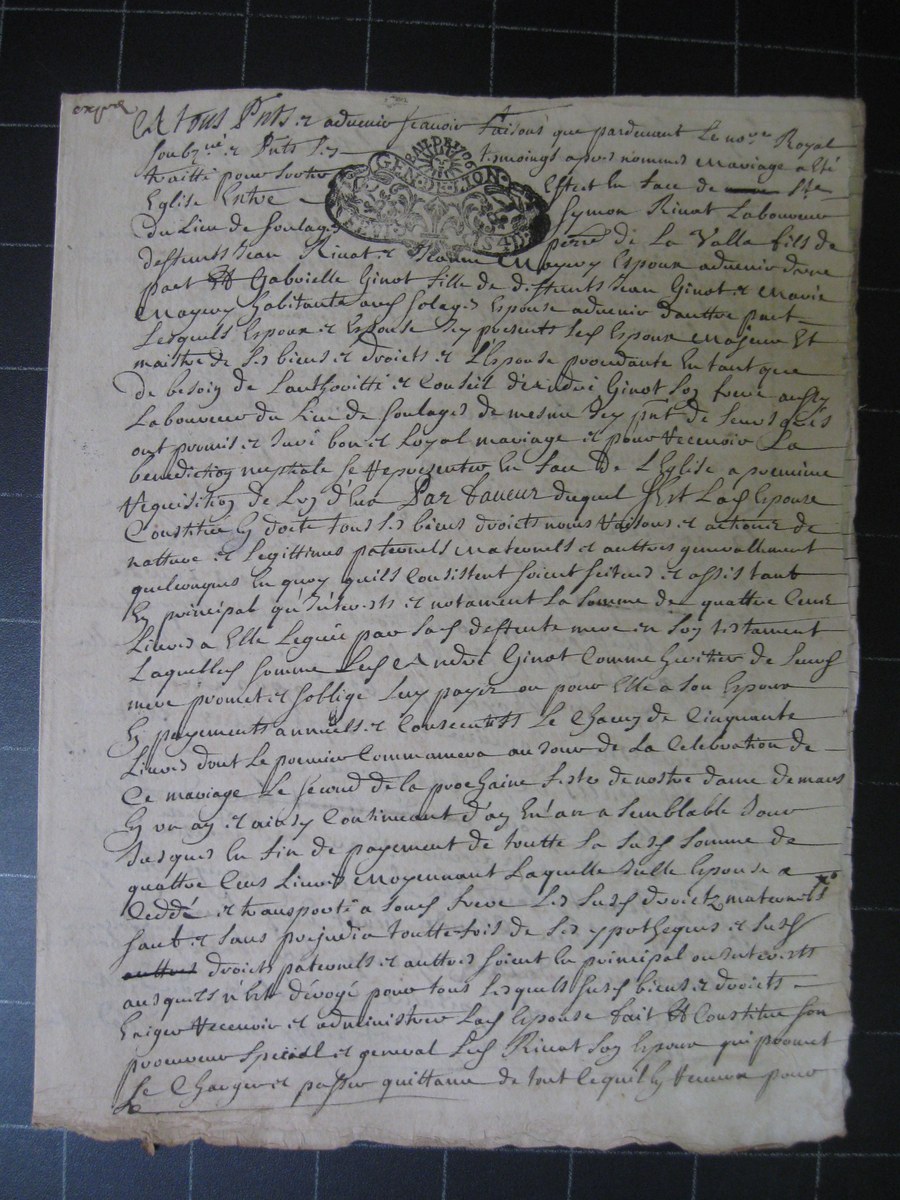 expédié
A tous pnts et advenir scavoir faisons que pardevant le nore Royal
soubzné et pnts les tesmoings apres nommes mariage a été
traitté pour sortir effect en face de Ste
Eglise Entre Symon Rivat Laboureur
du Lieu de soulages perre de La Valla fils de
deffunts Jean Rivat et Jeanne Mayery Espoux advenir dune
part Et Gabrielle Ginot fille de deffunts Jean Ginot et Marie
Mayery habitante aud solages Espouse advenir dauttre part
Lesquels Espoux et Espouse icy presents led Espoux majeur Et
maistre de ses biens et droicts et L'Espouse procedante En tant que
de besoin de Lauthoritté et Conseil d'André Ginot son frere aussy
Laboureur du Lieu de soulages de mesme icy pnt de leurs grés
ont promis et Juré bon et Loyal mariage et pour Recevoir La
benediction nuptiale se Representer En face de L'Eglise a premiere
Requisition de Lun d'Eux Par faveur duquel s'Est Lad Espouse
Constitué En docte tous ses biens droicts noms Raisons et actions de
natture et Legittimes paternels maternels et auttres generallement
quelconques En quoy qu'ils Consistent soient scitues et assis tant
En principal qu'interests et notament La somme de quattre Cents
Livres a Elle Leguée par sad deffunte mere en son testament
Laquelled somme Led Andre Ginot Comme heritier de leurd
mere promet et soblige Luy payer ou pour Elle a son Espoux
En payements annuels et Consecutifs Le Chacun de Cinquante
Livres dont Le premier Commancera au Jour de La Celebration de
Ce mariage Le second de la prochaine feste de nostre dame de mars
En un an et ainsy Continuant d'an En an a semblable Jour
Jusques En fin de payement de toutte La susd somme de
quattre Cens Livres Moyennant Laquelle Jcelle Espouse a
Ceddé et transporté a soud frere Les susd droicts maternels
sauf et sans prejudice touttefois de ses ypotheques et susd
auttres droicts paternels et auttres soient En principal ou interests
ausquels n'Est dérogé pour tous lesquels susd biens et droicts
Exiger Recevoir et administrer Lad Espouse fait Et Constitue son
procureur special et general Led Rivat son Espoux qui promet
Se Charger et passer quittance de tout Cequil En Recevra pour
GEN. DE LION